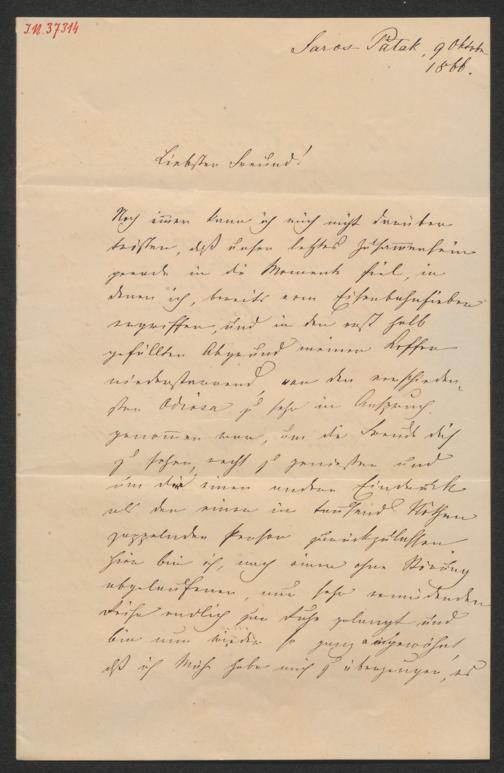 I.N. 37314
Saros Patak, 9 Oktober
1866.
Liebster Freund!
Noch immer kann ich mich nicht darüber
trösten, daß unser letztes Zusammensein
gerade in die Momente fiel, in
denen ich, bereits vom Eisenbahnfieber
ergriffen, und in den erst halb
gefüllten Abgrund meiner Koffer
niederstarrend, von den verschieden-
sten Odiosa zu sehr in Anspruch
genommen war, um die Freude dich
zu sehen, recht zu genießen und
um dir einen andern Eindruck
als den einer in tausend Nöthen
zappelnden Person zurückzulassen.
Hier bin ich, nach einer ohne Störung
abgelaufenen, nur sehr ermüdenden
Reise endlich zur Ruhe gelangt und
bin nun wieder so ganz eingewöhnt,
daß ich Mühe habe mich zu überzeugen, es